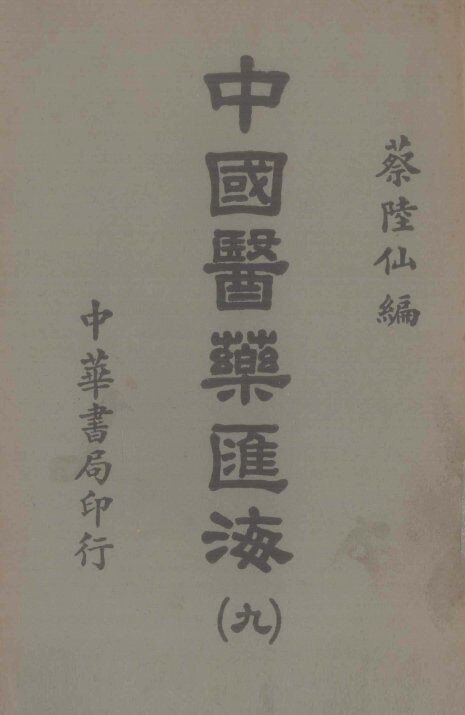 蔡陸仙編
中國醫藥匯海
(九)
中華書局印行